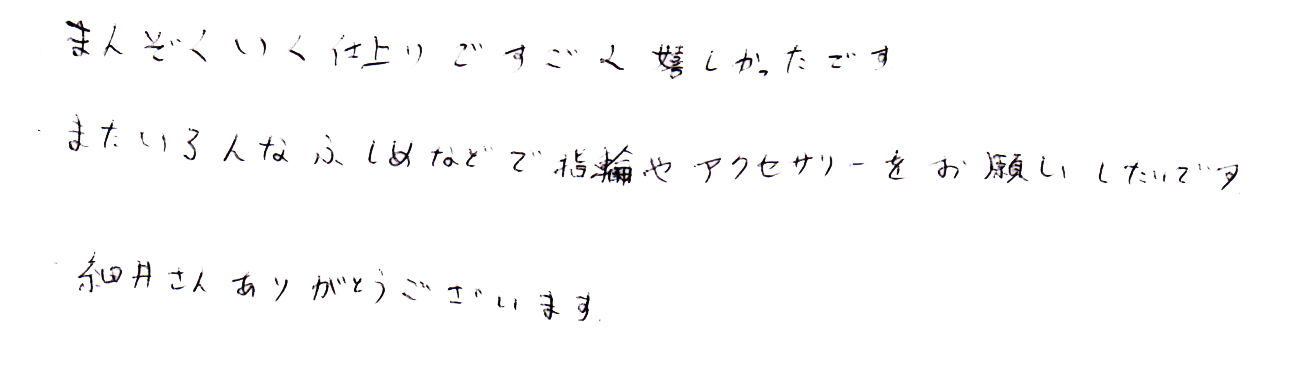 まんぞくいく仕上りですごく嬉しかったです
またいろんなふしめなどで指輪やアクセサリーをお願いしたいです
細井さんありがとうございます